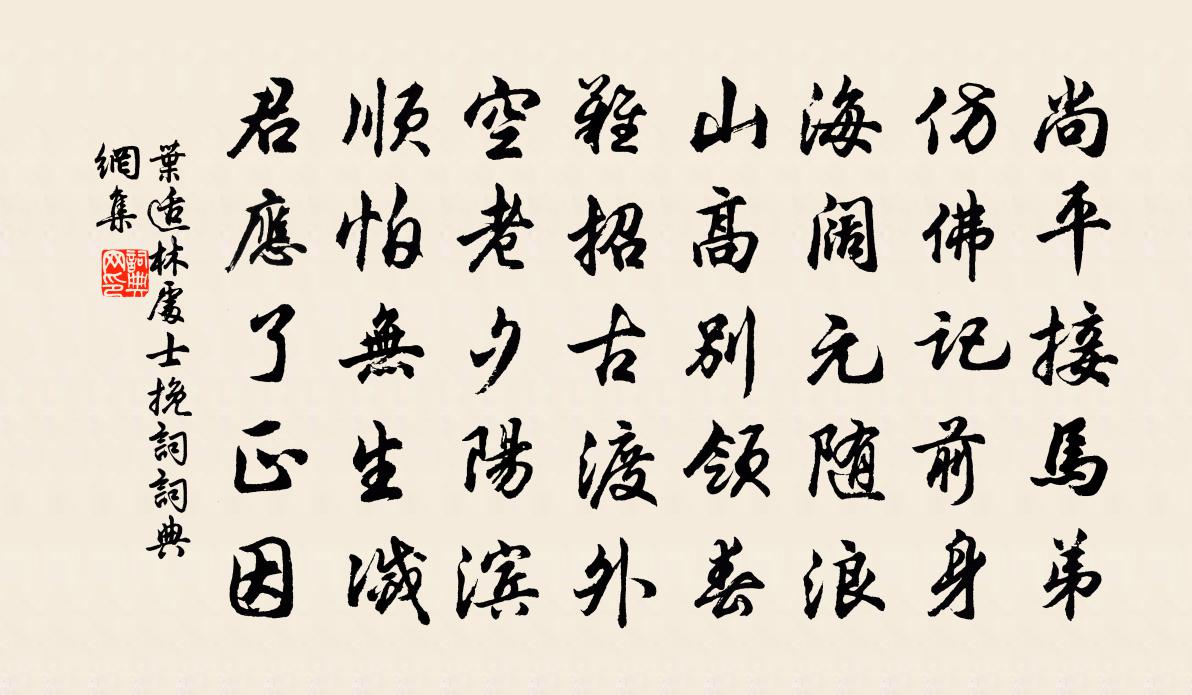 尚平接馬弟
仿佛记前身
海阔元随浪
山高别領春
難招古渡外
空老夕陽滨
順怕無生滅
君應了正因
葉适林處士挽詞詞典
網集
詞典
网印